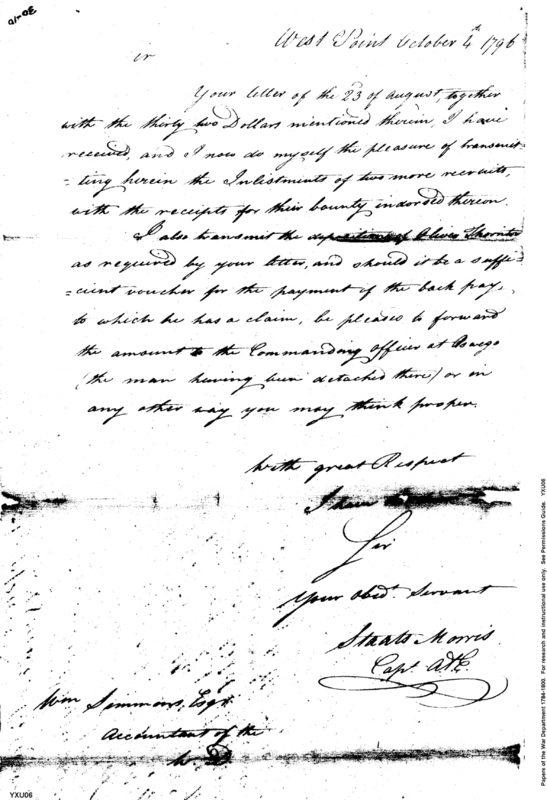 West Point October 4th 1796
ir
Your letter of the 23 of August, together
with the thirty two Dollars mentioned therein, I have
received, and I now do myself the pleasure of transmit
=ting herein the Inlistments of two more recruits,
with the receipts for their bounty indorsed thereon.
I also transmit the deposition of Oliver Thornton
as required by your letter, and should it be a suffi
=cient voucher for the payment of the back pay,
to which he has a claim, be pleased to forward
the amount to the Commanding officer at Oswego
(the man having been detached there) or in
any other way you may think proper.
With great Respect
I have
Sir
Your Obedt Servant
Staats Morris
Capt. A&E.
Wm Simmons, Esqr
Accountant of the
W D
YXU06
Papers of the War Department 1784-1800. For research and instructional use only. See Permissions Guide. YXU06